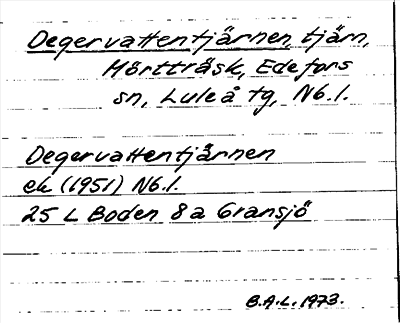 Degervattentjärnen, tjärn,
Mörtträsk, Edefors
sn, Luleå tg, Nb.l.
Degervattentjärnen
ek (1951) Nb.l.
25 L Boden 8a Gransjö
B.A.L. 1973.